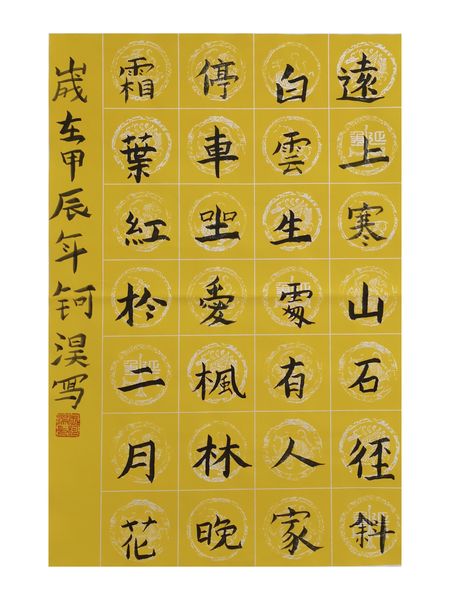 遠上寒山石径斜
白雲生處有人家
停車坐愛楓林晚
霜葉紅於二月花
歲在甲辰年钶淏写